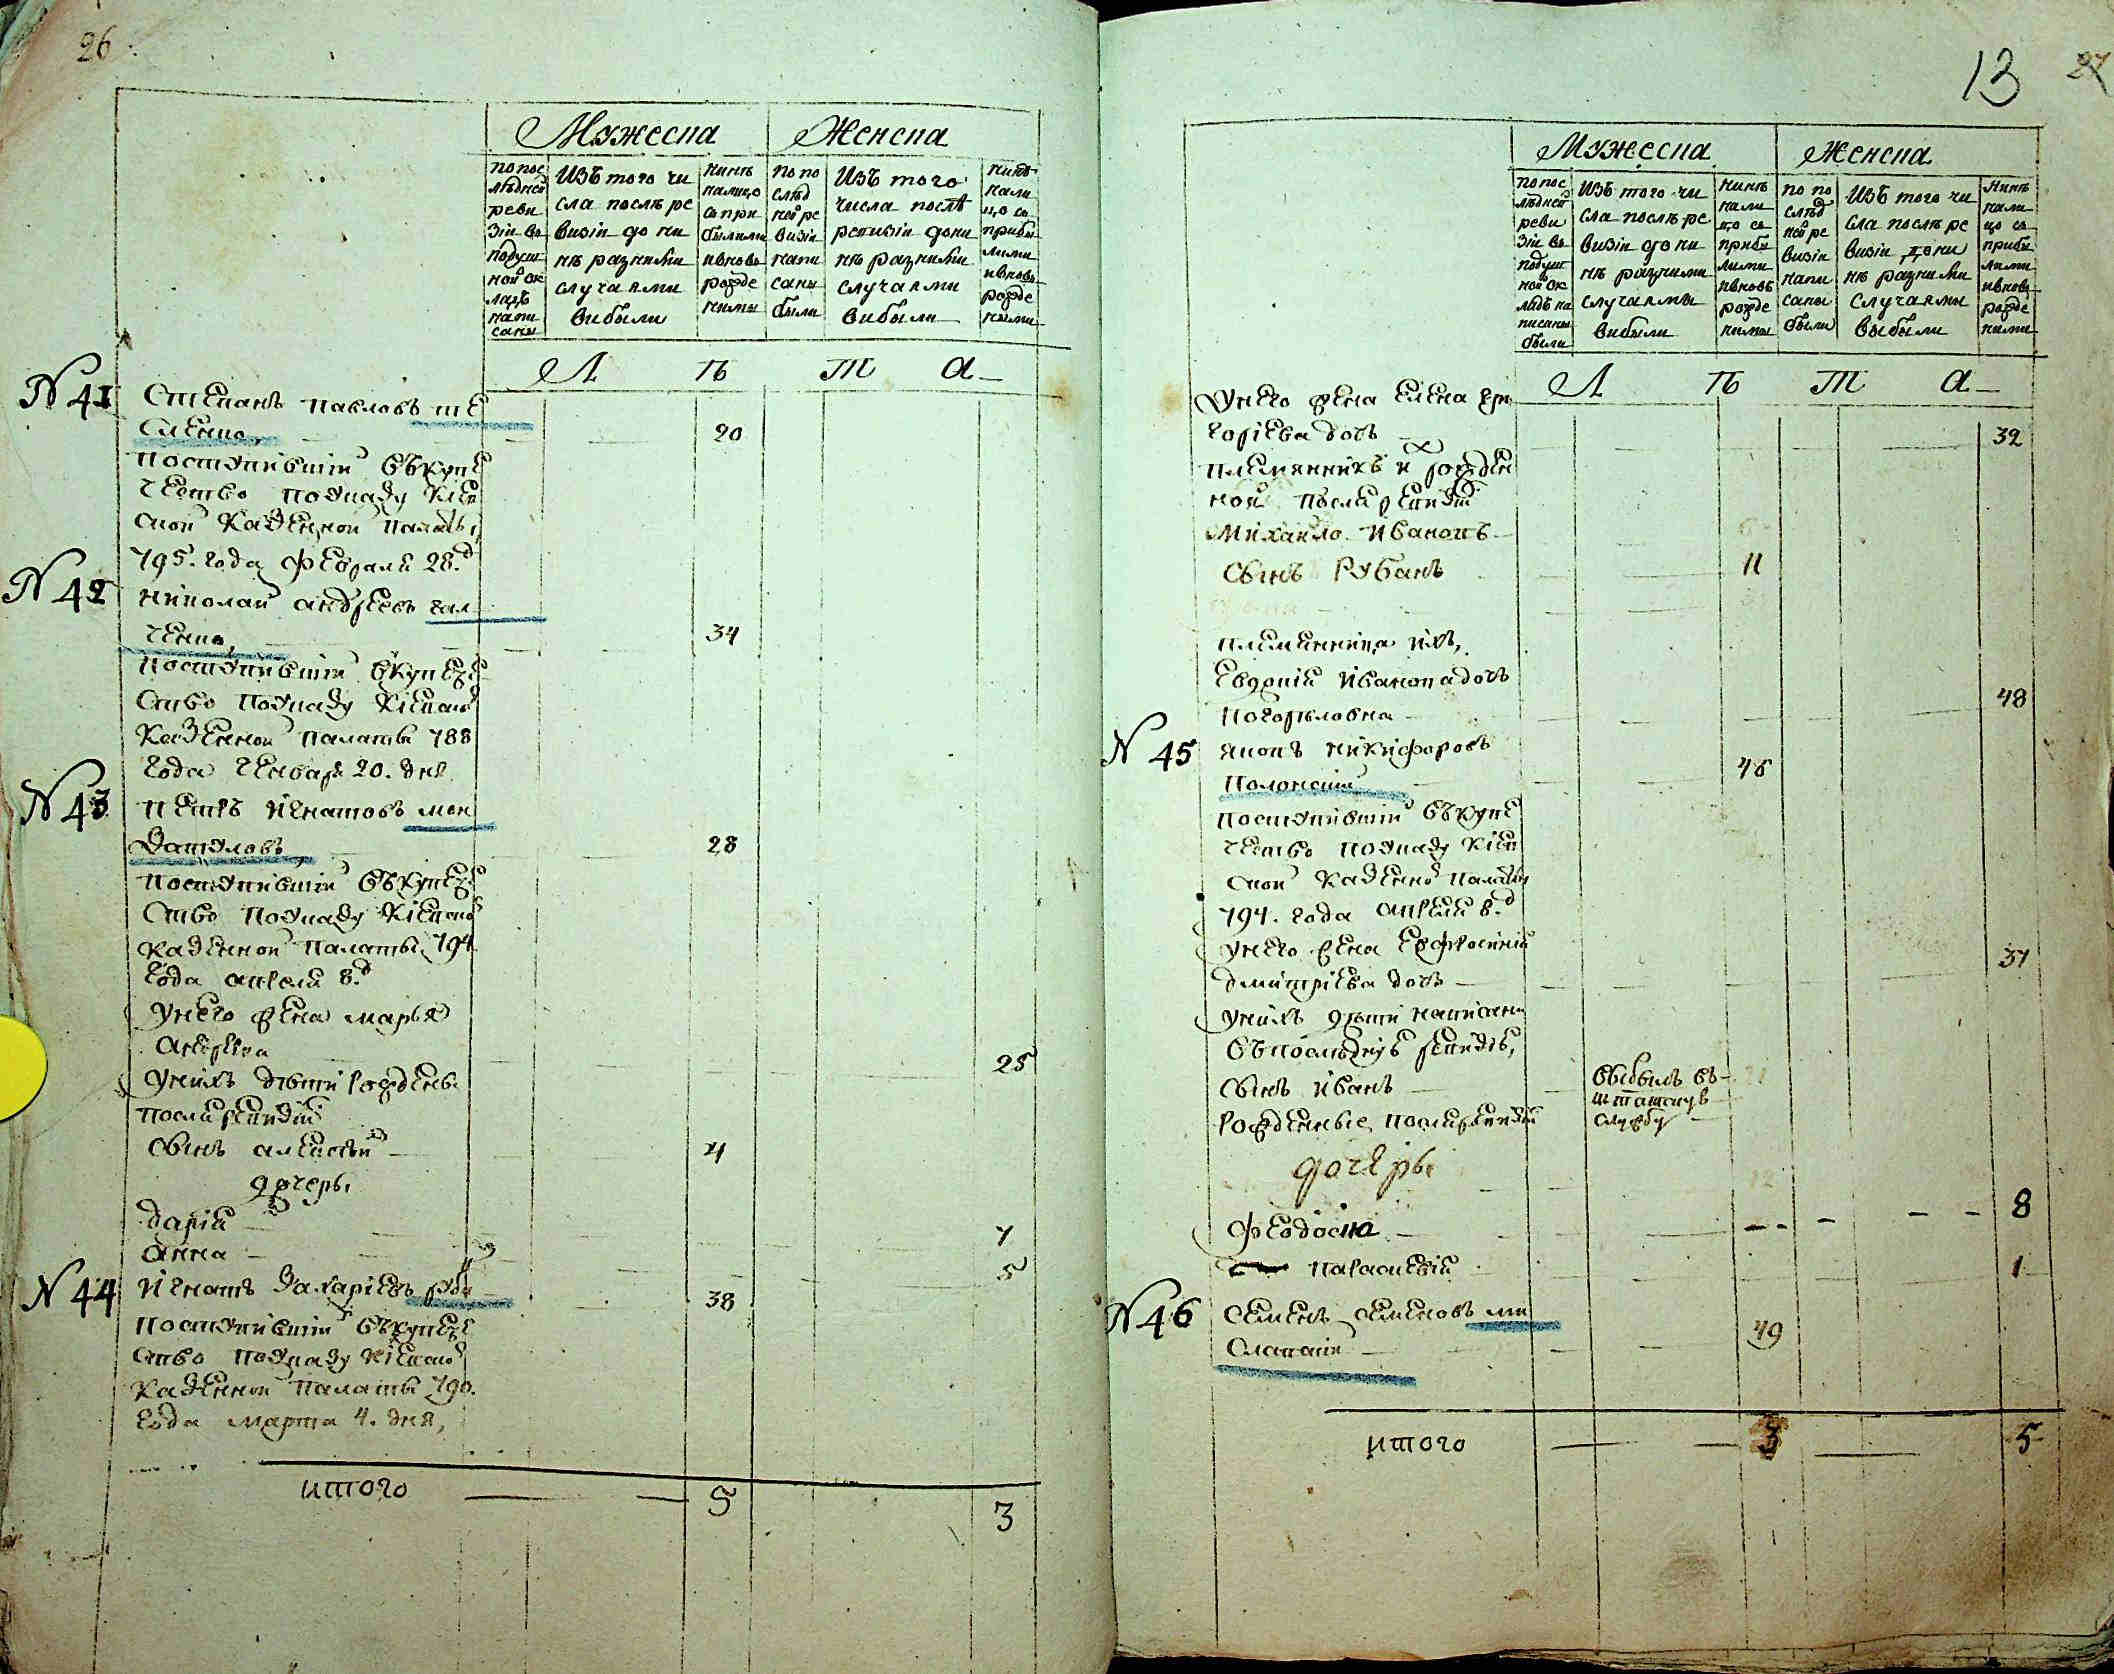 26
Мужеска Женска
по пос лѣдней реви зіи въ подуш ной ок ладъ напи саны
Изъ того чи сла послѣ ре визіи до ни нѣ разними случаями вибыли
нинѣ налицо съ при былими и вновь рожде ними
по по слѣд ней ре визіи напи саны были
Изъ того числа послѣ ревизіи дони нѣ разними случаями вибыли
нинѣ нали цо съ прибы лими и вновь рожде ними
Л ѣ т а
N 41 Степанъ Павловъ
20
поступившій въ купе
чество по указу Кіев
ской казенной палаты
795. года февраля 28.д
N 42 Николай Андреевъ гал
ченко, 34
поступившій в купече
ство по указу Кіевской
казенной палаты 788
года генваря 20. дня
N 43 Петръ Игнатовъ ман
28
поступившій въ купече
ство по указу Кіевской
казенной палаты 794
года апреля 8.д
у него жена Марья
25
у нихъ дѣти рожденые
после ревизіи
сынъ Алексей 4
дочеры
Дарія 7
Анна 5
N 44 Игнатъ Захаріевъ 38
поступившій въ купече
ство по указу Кіевской
казенной палаты 790.
года марта 4. дня,
итого 5 3
13 27
Мужеска Женска
по пос лѣдней реви зіи въ подуш ной ок ладъ на писаны были
Изъ того чи сла послѣ ре визіи до ни нѣ разними случаями вибыли
нинѣ нали цо съ прибы лими и вновь рожде ними
по по слѣд ней ре визіи напи саны были
Изъ того чи сла послѣ ре визіи до ни нѣ разними случаями выбыли
нинѣ нали цо съ прибы лими и вновь рожде ними
Л ѣ т а
у него жена Елена гри
горіева дочь 32
племянникъ и рожден
ной после ревизіи
Михайло Ивановъ
сынъ Рубанъ 11
племенница ихъ,
Евдокія Иванова дочь
48
N 45 Яковъ Никифоровъ
Полонскій 46
поступившій въ купе
чество по указу Кіев
ской казенно палаты
794. года апреля 8.д
у него жена Ефросинія
Дмитріева дочь 37
у нихъ дѣти написаны
въ последнуй ревизіи,
сынъ Иванъ выбылъ въ
штатную
службу
Рожденые после ревизіи
дочеры
Феодосія 8
Параскевія 1
N 46 Семенъ Семеновъ ми
славскій 49
итого 3 5